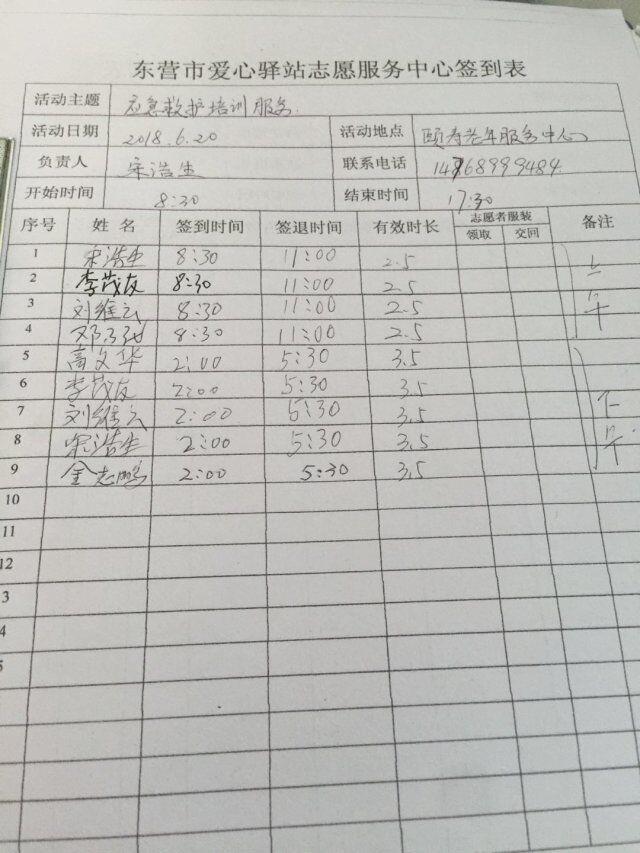 东营市爱心驿站志愿服务中心签到表
活动主题 应急救护培训服务
活动日期 2018.6.20 活动地点 颐寿老年服务中心
负责人 宋浩生 联系电话 14768999484
开始时间 8:30 结束时间 17:30
序号 姓名 签到时间 签退时间 有效时长 志愿者服装 备注
领取 交回
1 宋浩生 8:30 11:00 2.5 上午
2 李茂友 8:30 11:00 2.5
3 刘维云 8:30 11:00 2.5
4 8:30 11:00 2.5
5 高文华 2:00 5:30 3.5 下午
6 李茂友 2:00 5:30 3.5
7 刘维云 2:00 5:30 3.5
8 宋浩生 2:00 5:30 3.5
9 金志鹏 2:00 5:30 3.5
10
11
12
3
4
5